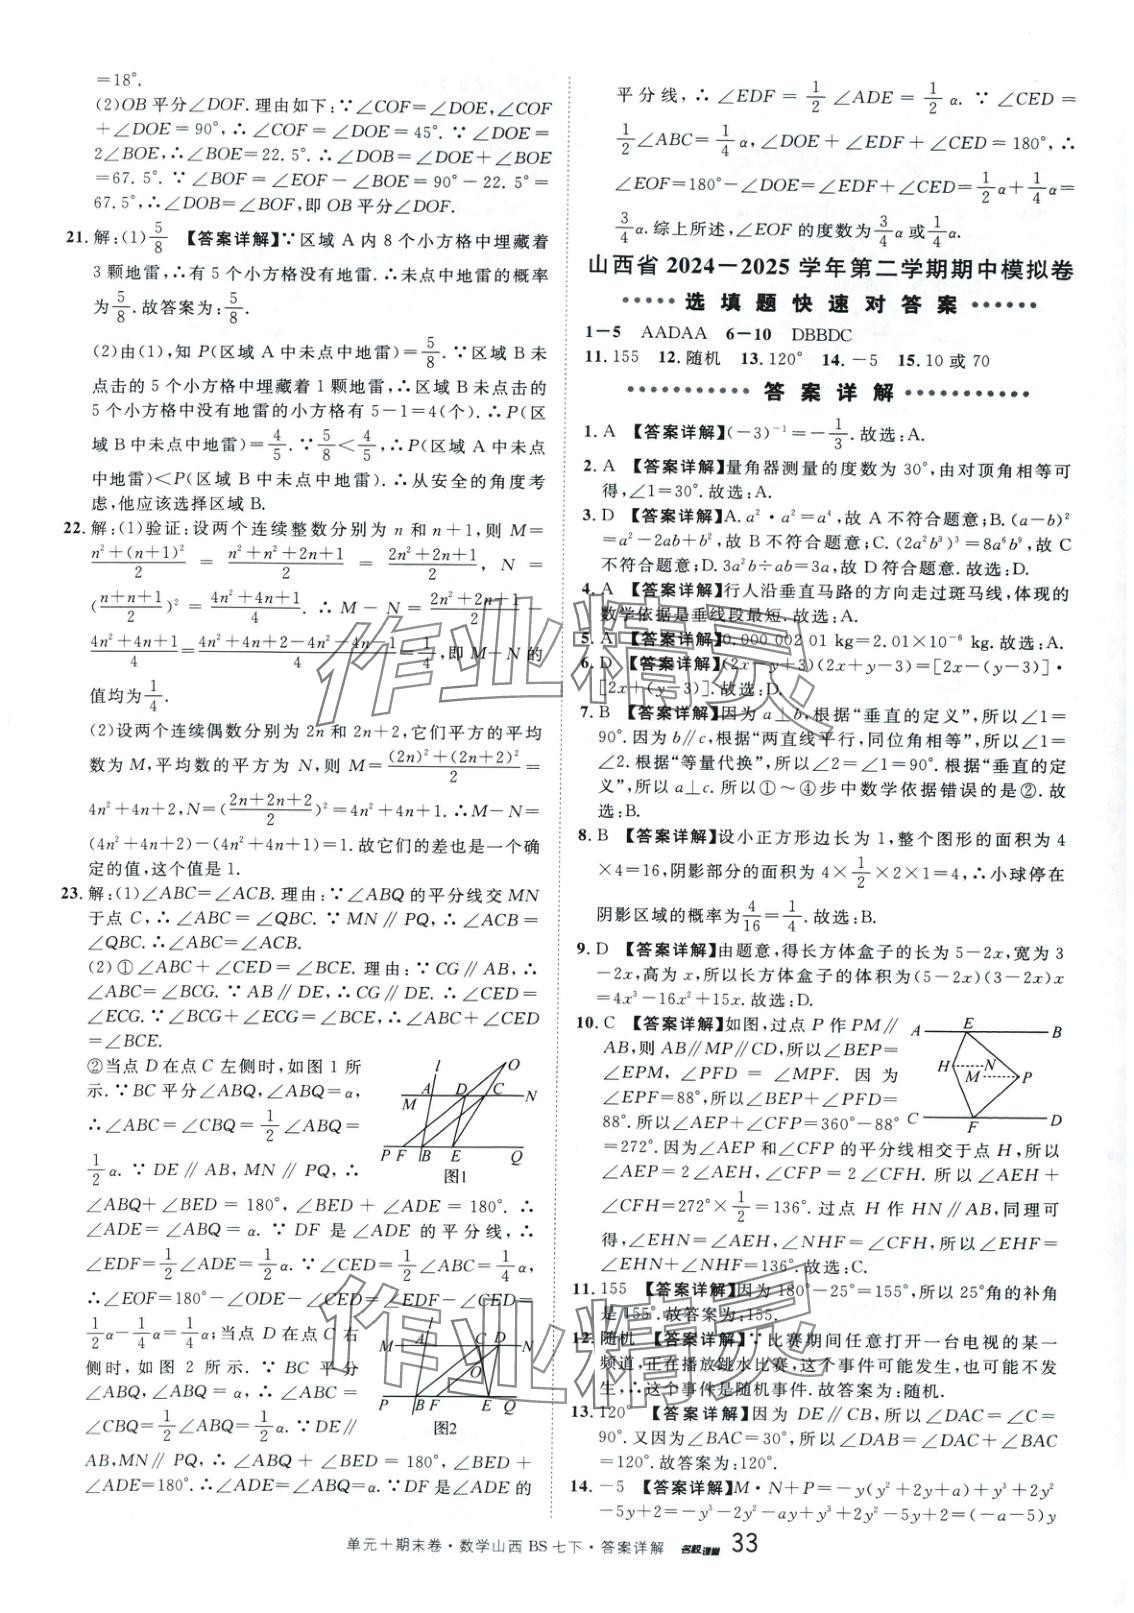 =18°.
(2)OB 平分∠DOF. 理由如下:∵∠COF=∠DOE,∠COF
+∠DOE=90°,∴∠COF=∠DOE=45°. ∵∠DOE=
2∠BOE,∴∠BOE=22.5°. ∴∠DOB=∠DOE+∠BOE
=67.5°. ∵∠BOF=∠EOF-∠BOE=90°-22.5°=
67.5°,∴∠DOB=∠BOF,即 OB 平分∠DOF.
21. 解:(1)5/8 【答案详解】∵区域 A 内 8 个小方格中埋藏着
3 颗地雷,∴有 5 个小方格没有地雷. ∴未点中地雷的概率
为5/8. 故答案为:5/8.
(2)由(1),知 P(区域 A 中未点中地雷)=5/8. ∵区域 B 未
点击的 5 个小方格中埋藏着 1 颗地雷,∴区域 B 未点击的
5 个小方格中没有地雷的小方格有 5-1=4(个). ∴P(区
域 B 中未点中地雷)=4/5. ∵5/8<4/5,∴P(区域 A 中未点
中地雷)<P(区域 B 中未点中地雷). ∴从安全的角度考
虑,他应该选择区域 B.
22. 解:(1)验证:设两个连续整数分别为 n 和 n+1,则 M=
(n²+(n+1)²)/2 = (n²+n²+2n+1)/2 = (2n²+2n+1)/2, N =
((n+n+1)/2)²=(4n²+4n+1)/4. ∴M-N=(2n²+2n+1)/2-
(4n²+4n+1)/4=(4n²+4n+2-4n²-4n-1)/4=1/4,即 M-N 的
值均为1/4.
(2)设两个连续偶数分别为 2n 和 2n+2,它们平方的平均
数为 M,平均数的平方为 N,则 M=((2n)²+(2n+2)²)/2=
4n²+4n+2,N=((2n+2n+2)/2)²=4n²+4n+1. ∴M-N=
(4n²+4n+2)-(4n²+4n+1)=1. 故它们的差也是一个确
定的值,这个值是 1.
23. 解:(1)∠ABC=∠ACB. 理由:∵∠ABQ 的平分线交 MN
于点 C,∴∠ABC=∠QBC. ∵MN∥PQ,∴∠ACB=
∠QBC. ∴∠ABC=∠ACB.
(2)①∠ABC+∠CED=∠BCE. 理由:∵CG∥AB,∴
∠ABC=∠BCG. ∵AB∥DE,∴CG∥DE. ∴∠CED=
∠ECG. ∵∠BCG+∠ECG=∠BCE,∴∠ABC+∠CED
=∠BCE.
②当点 D 在点 C 左侧时,如图 1 所
示. ∵BC 平分∠ABQ,∠ABQ=α,
∴∠ABC=∠CBQ=1/2∠ABQ=
1/2α. ∵DE∥AB,MN∥PQ,∴
∠ABQ+∠BED=180°,∠BED+∠ADE=180°. ∴
∠ADE=∠ABQ=α. ∵DF 是∠ADE 的平分线,∴
∠EDF=1/2∠ADE=1/2α. ∵∠CED=1/2∠ABC=1/4α,
∴∠EOF=180°-∠ODE-∠CED=∠EDF-∠CED=
1/2α-1/4α=1/4α;当点 D 在点 C 右
侧时,如图 2 所示. ∵BC 平分
∠ABQ,∠ABQ=α,∴∠ABC=
∠CBQ=1/2∠ABQ=1/2α. ∵DE∥
AB,MN∥PQ,∴∠ABQ+∠BED=180°,∠BED+
∠ADE=180°. ∴∠ADE=∠ABQ=α. ∵DF 是∠ADE 的
l O
M A D C N
P F B E Q
图1
l
M A C D N
O
P B F E Q
图2
平分线,∴∠EDF=1/2∠ADE=1/2α. ∵∠CED=
1/2∠ABC=1/4α,∠DOE+∠EDF+∠CED=180°,∴
∠EOF=180°-∠DOE=∠EDF+∠CED=1/2α+1/4α=
3/4α. 综上所述,∠EOF 的度数为3/4α或1/4α.
山西省 2024—2025 学年第二学期期中模拟卷
选填题快速对答案
1-5 AADAA 6-10 DBBDC
11. 155 12. 随机 13. 120° 14. -5 15. 10 或 70
答案详解
1. A 【答案详解】(-3)⁻¹=-1/3. 故选:A.
2. A 【答案详解】量角器测量的度数为 30°,由对顶角相等可
得,∠1=30°. 故选:A.
3. D 【答案详解】A. a²·a²=a⁴,故 A 不符合题意;B. (a-b)²
=a²-2ab+b²,故 B 不符合题意;C. (2a²b³)³=8a⁶b⁹,故 C
不符合题意;D. 3a²b÷ab=3a,故 D 符合题意. 故选:D.
4. A 【答案详解】行人沿垂直马路的方向走过斑马线,体现的
数学依据是垂线段最短. 故选:A.
5. A 【答案详解】0.000 002 01 kg=2.01×10⁻⁶ kg. 故选:A.
6. D 【答案详解】(2x-y+3)(2x+y-3)=[2x-(y-3)]·
[2x+(y-3)]. 故选:D.
7. B 【答案详解】因为 a⊥b,根据“垂直的定义”,所以∠1=
90°. 因为 b∥c,根据“两直线平行,同位角相等”,所以∠1=
∠2. 根据“等量代换”,所以∠2=∠1=90°. 根据“垂直的定
义”,所以 a⊥c. 所以①～④步中数学依据错误的是②. 故
选:B.
8. B 【答案详解】设小正方形边长为 1,整个图形的面积为 4
×4=16,阴影部分的面积为 4×1/2×2×1=4,∴小球停在
阴影区域的概率为4/16=1/4. 故选:B.
9. D 【答案详解】由题意,得长方体盒子的长为 5-2x,宽为 3
-2x,高为 x,所以长方体盒子的体积为(5-2x)(3-2x)x
=4x³-16x²+15x. 故选:D.
10. C 【答案详解】如图,过点 P 作 PM∥
AB,则 AB∥MP∥CD,所以∠BEP=
∠EPM,∠PFD=∠MPF. 因为
∠EPF=88°,所以∠BEP+∠PFD=
88°. 所以∠AEP+∠CFP=360°-88°
=272°. 因为∠AEP 和∠CFP 的平分线相交于点 H,所以
∠AEP=2∠AEH,∠CFP=2∠CFH. 所以∠AEH+
∠CFH=272°×1/2=136°. 过点 H 作 HN∥AB,同理可
得,∠EHN=∠AEH,∠NHF=∠CFH,所以∠EHF=
∠EHN+∠NHF=136°. 故选:C.
A E B
H N
M P
C F D
11. 155 【答案详解】因为 180°-25°=155°,所以 25°角的补角
是 155°. 故答案为:155.
12. 随机 【答案详解】∵比赛期间任意打开一台电视的某一
频道,正在播放跳水比赛,这个事件可能发生,也可能不发
生,∴这个事件是随机事件. 故答案为:随机.
13. 120° 【答案详解】因为 DE∥CB,所以∠DAC=∠C=
90°. 又因为∠BAC=30°,所以∠DAB=∠DAC+∠BAC
=120°. 故答案为:120°.
14. -5 【答案详解】M·N+P=-y(y²+2y+a)+y³+2y²
-5y+2=-y³-2y²-ay+y³+2y²-5y+2=(-5-a)y+2,
单元+期末卷·数学山西 BS 七下·答案详解 名校课堂 33
作业精灵
作业精灵